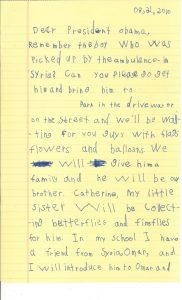 Dear President Obama,
Remember the boy who was
picked up by the ambulance in
Syria? Can you please go get
him and bring him to
Park in the driveway or
on the street and we'll be wai-
ting for you guys with flags
flowers and balloons. We
will give him a
family and he will be our
brother. Catherine, my little
sister will be collect-
ing butterflies and fireflies
for him. In my school I have
a friend from Syria, Omar, and
I will introduce him to Omar and